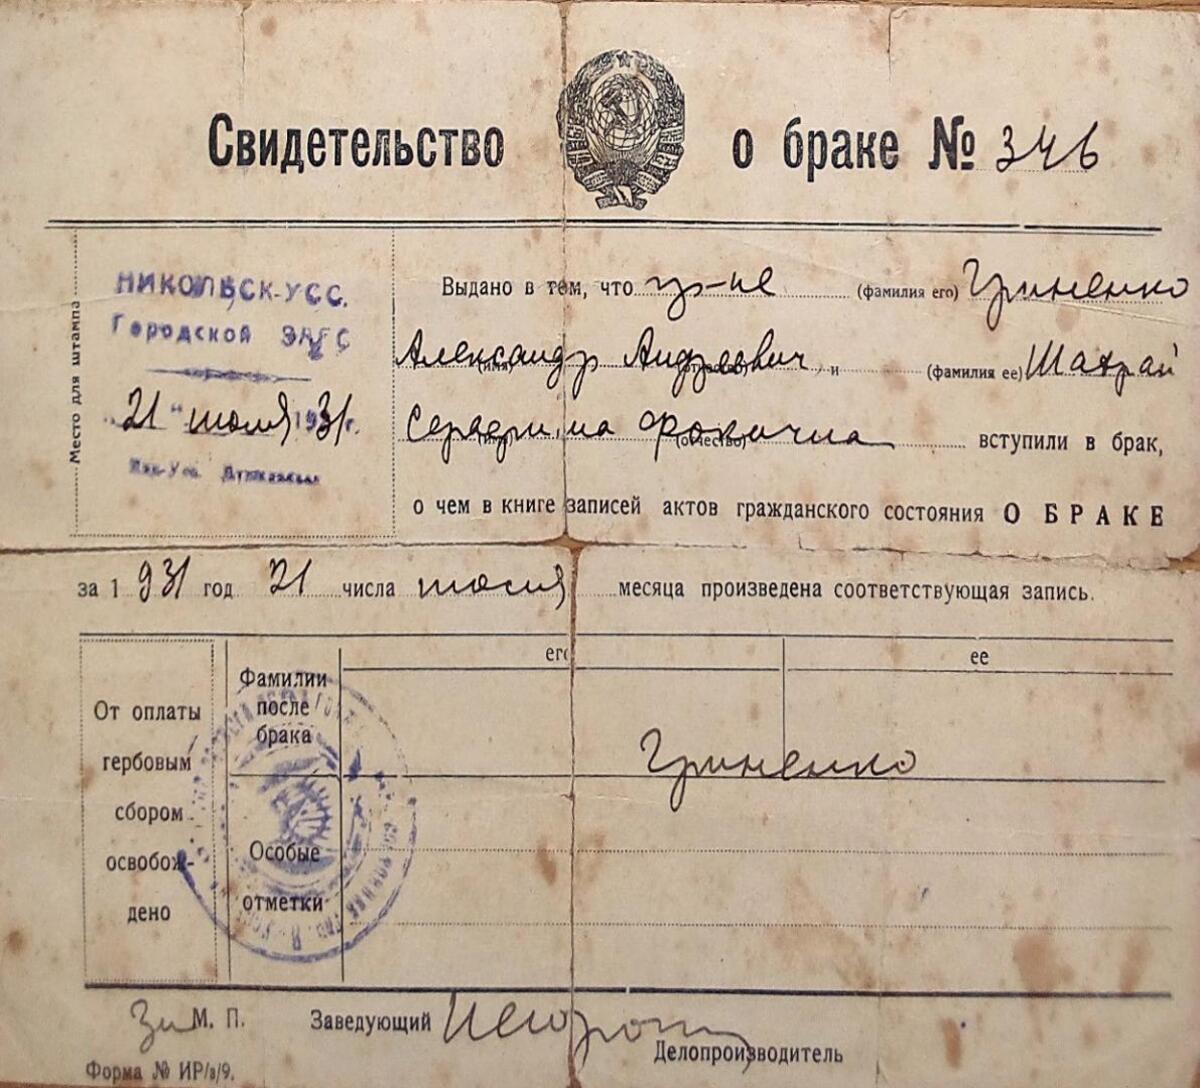 Свидетельство о браке № 346
Место для штампа
НИКОЛЬСК-УСС.
Городской ЗАГС
"21" июля 1931 г.
Выдано в том, что гр-не (фамилия его) Гриненко
Александр Андреевич (имя) (отчество), и (фамилия ее) Шахрай
Серафима Фокична (имя) (отчество) вступили в брак,
о чем в книге записей актов гражданского состояния О БРАКЕ
за 1931 год 21 числа июля месяца произведена соответствующая запись.
От оплаты
гербовым
сбором
освобож-
дено
Фамилии
после
брака
его
ее
Гриненко
Особые
отметки
М. П. Заведующий
Делопроизводитель
Форма № ИР/з/9.